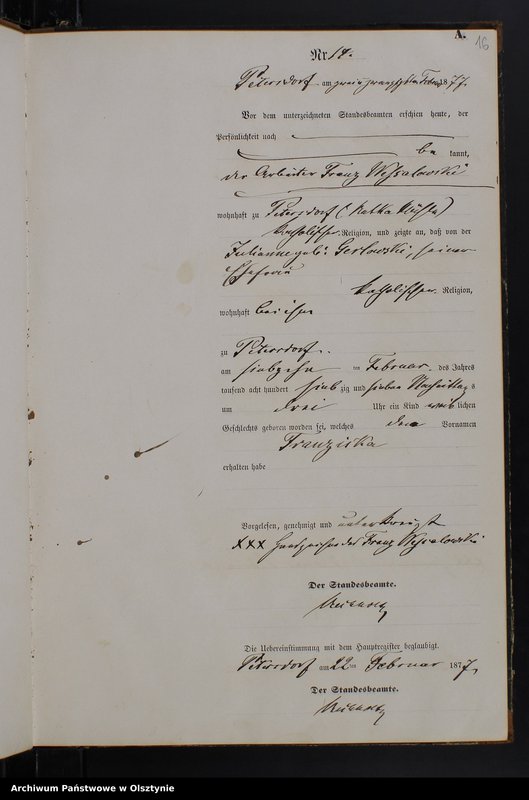 A.
16
Nr 14.
Petersdorf am zwei u. zwanzigsten Februar 1877.
Vor dem unterzeichneten Standesbeamten erschien heute, der
Persönlichkeit nach
be kannt,
der Arbeiter Franz
wohnhaft zu Petersdorf
katholischer Religion, und zeigte an, daß von der
Julianne geb: Gerlowski, seiner
Ehefrau
katholischer Religion,
wohnhaft bei ihm
zu Petersdorf.
am siebzehn ten Februar des Jahres
tausend acht hundert sieb zig und sieben Nachmittag s
um drei Uhr ein Kind weib lichen
Geschlechts geboren worden sei, welches den Vornamen
Franziska
erhalten habe
Vorgelesen, genehmigt und unterkreuzt
XXX Handzeichen des Franz
Der Standesbeamte.
Die Uebereinstimmung mit dem Hauptregister beglaubigt.
Petersdorf am 22 ten Februar 1877.
Der Standesbeamte.
Archiwum Państwowe w Olsztynie